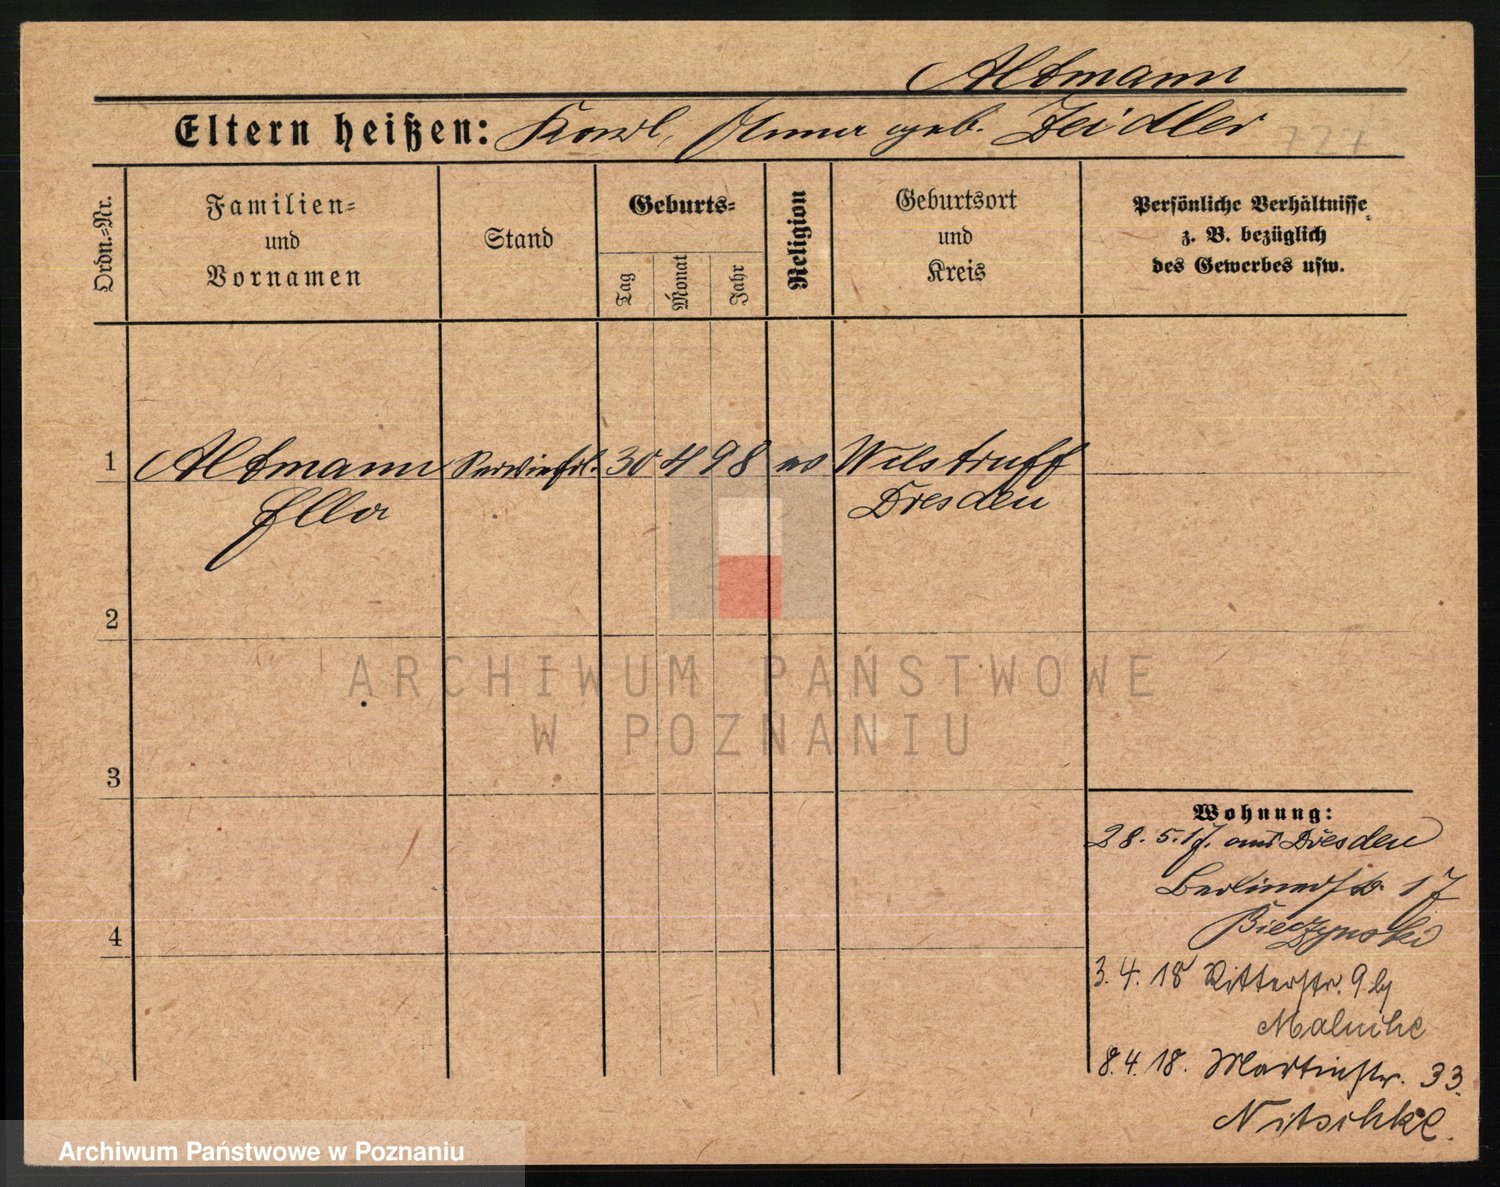 Altmann
Eltern heißen: Karl, Anna geb. Zeidler 727
Ordn.-Nr.
Familien- und Vornamen
Stand
Geburts-
Tag
Monat
Jahr
Religion
Geburtsort und Kreis
Persönliche Verhältnisse
z. B. bezüglich
des Gewerbes usw.
1 Altmann 30 4 98 ev Wilstruff
Ella Dresden
2
3
4
Wohnung:
28. 5. 17. aus Dresden
Berlinerstr. 17
Bieczynski
3. 4. 18 Ritterstr. 9
8. 4. 18. Martinstr. 33.
Nitschke.
ARCHIWUM PAŃSTWOWE
W POZNANIU
Archiwum Państwowe w Poznaniu